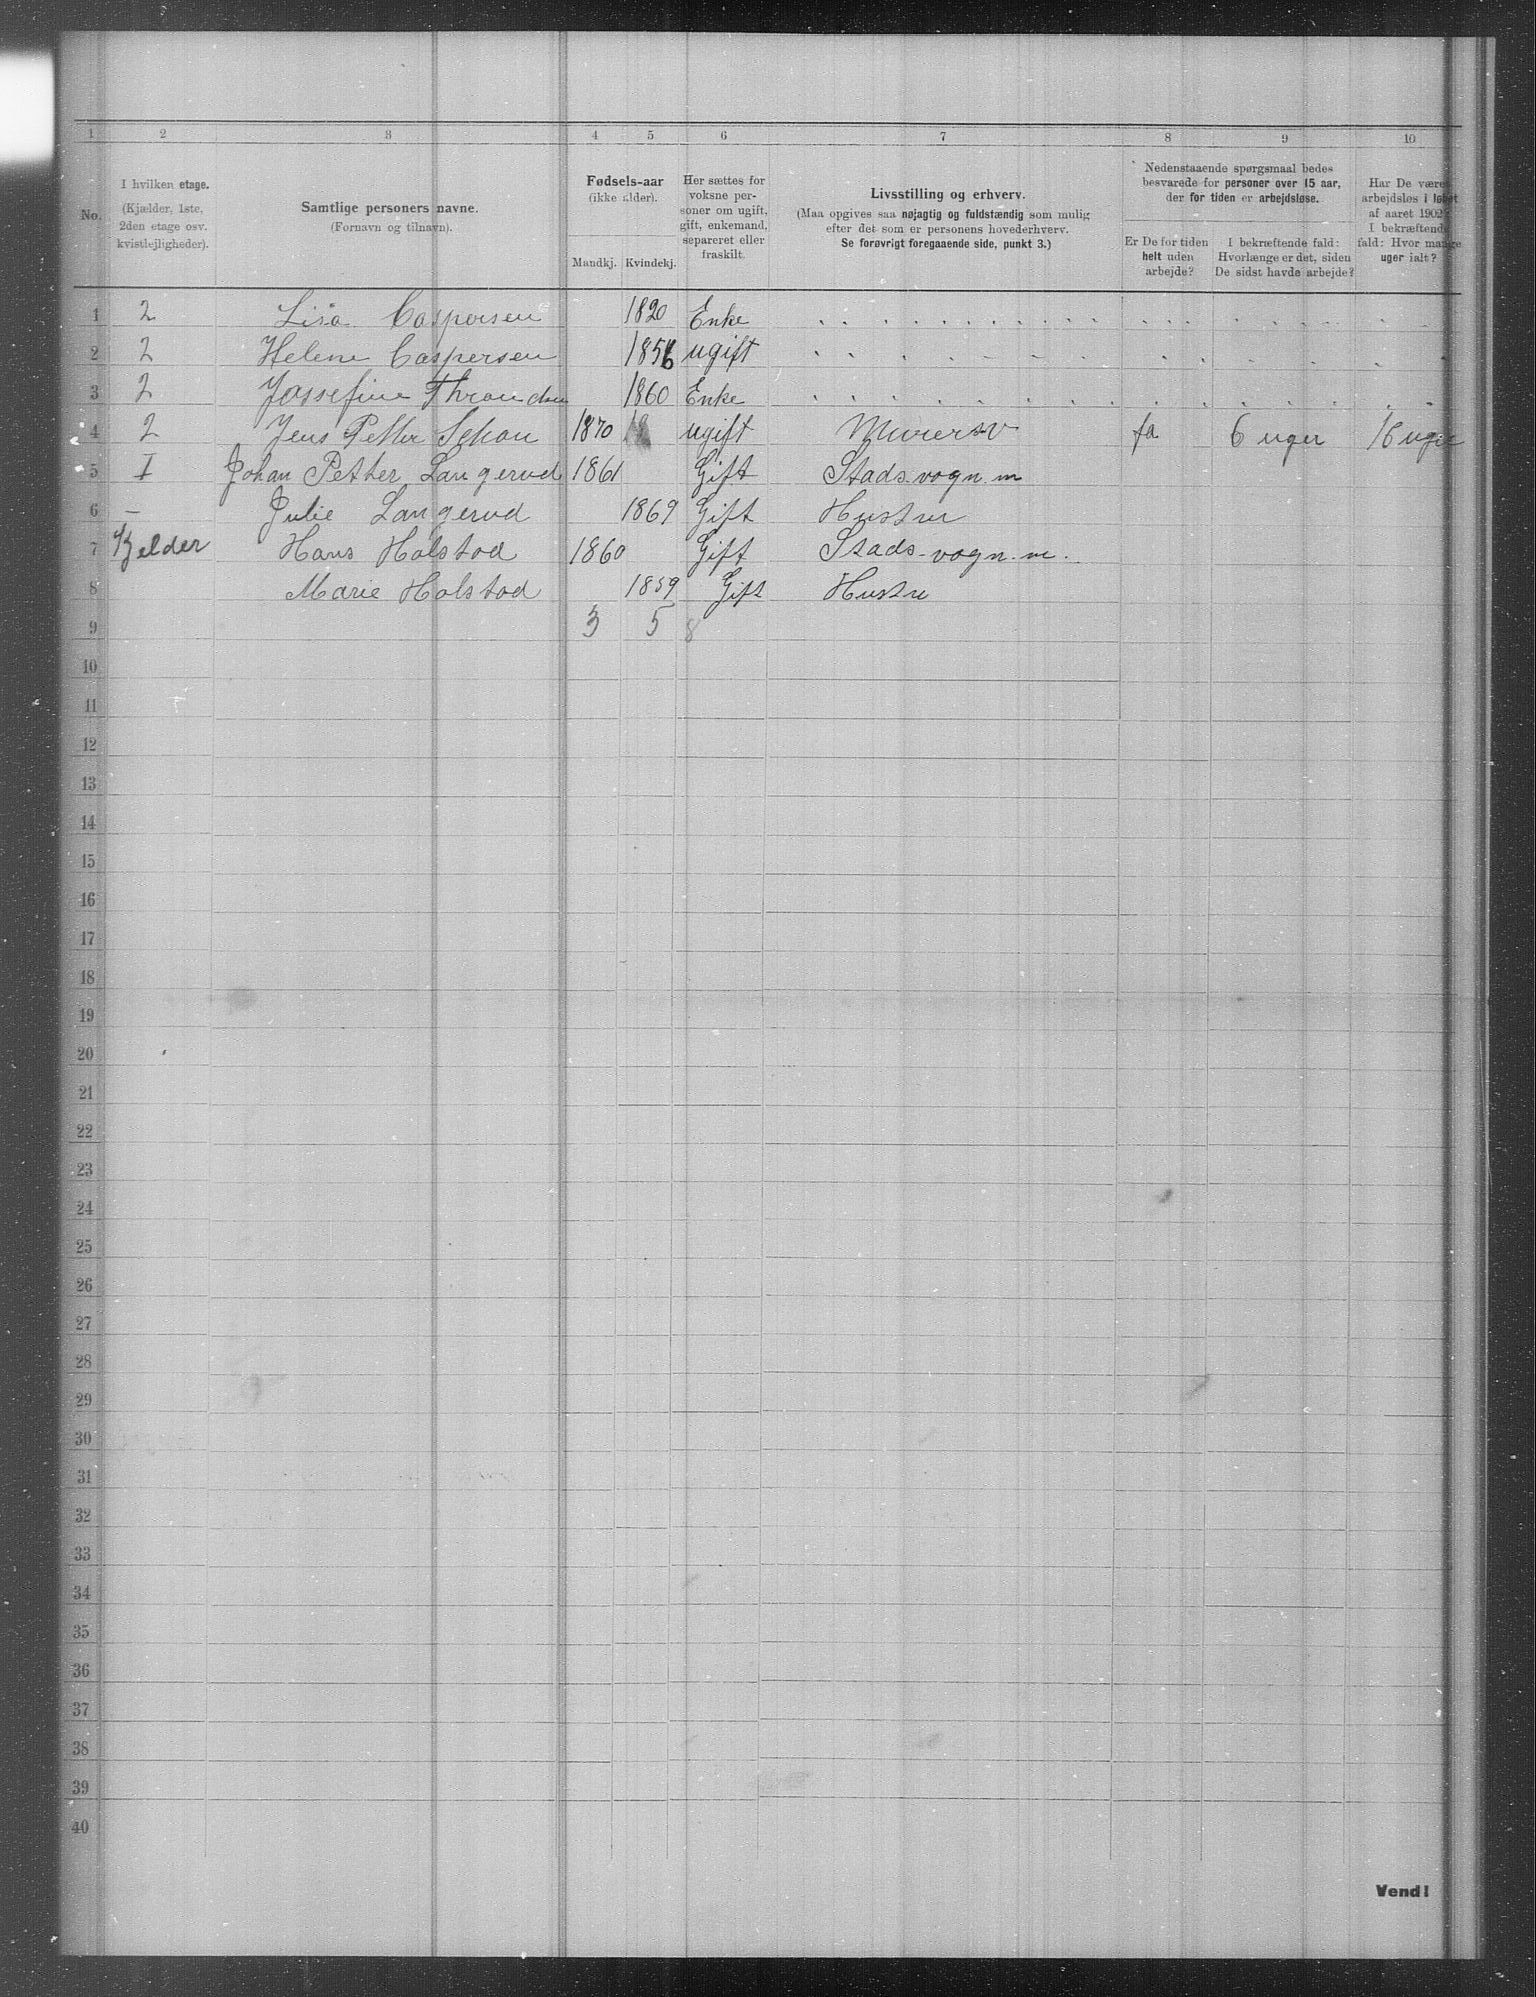 1 2 3 4 5 6 7 8 9 10
No.
I hvilken etage.
(Kjælder, 1ste,
2den etage osv.
kvistlejligheder).
Samtlige personers navne.
(Fornavn og tilnavn).
Fødsels-aar
(ikke alder).
Mandkj. Kvindekj.
Her sættes for
voksne per-
soner om ugift,
gift, enkemand,
separeret eller
fraskilt.
Livsstilling og erhverv.
(Maa opgives saa nøjagtig og fuldstændig som mulig
efter det som er personens hovederhverv.
Se forøvrigt foregaaende side, punkt 3.)
Nedenstaaende spørgsmaal bedes
besvarede for personer over 15 aar,
der for tiden er arbejdsløse.
Er De for tiden
helt uden
arbejde?
I bekræftende fald:
Hvorlænge er det, siden
De sidst havde arbejde?
Har De været
arbejdsløs i løbet
af aaret 1902?
I bekræftende
fald: Hvor mange
uger ialt?
1 2 Lisa Caspersen 1820 Enke
2 2 Helene Caspersen 1856 ugift
3 2 Jossefine Throndsen 1860 Enke
4 2 Jens Petter Schou 1870 18 ugift Murersv ja 6 uger 16 uger
5 I Johan Petter Langerud 1861 Gift Stads-vogn.m
6 — Julie Langerud 1869 Gift Hustru
7 Kjelder Hans Holstad 1860 Gift Stads-vogn.m.
8 Marie Holstad 1859 Gift Hustru
9 3 5 8
10
11
12
13
14
15
16
17
18
19
20
21
22
23
24
25
26
27
28
29
30
31
32
33
34
35
36
37
38
39
40
Vend!